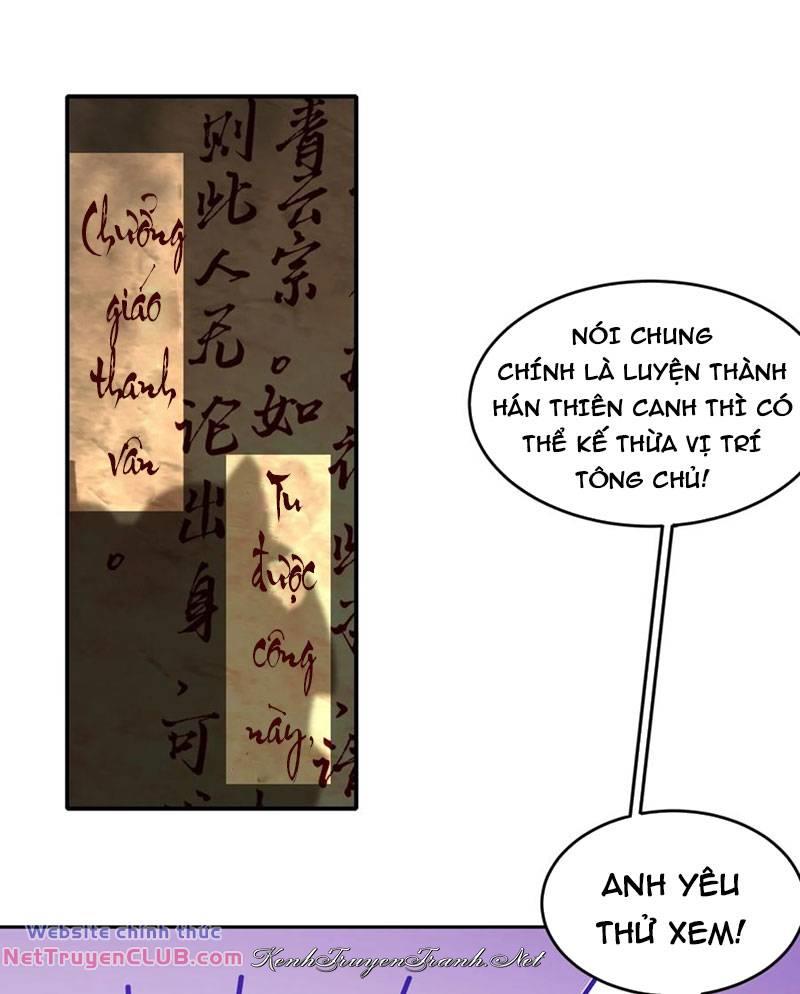 青云宗。如
则此人无论出身，可
。
Chưởng
giáo
thanh
vân
Tu
được
công
này,
NÓI CHUNG
CHÍNH LÀ LUYỆN THÀNH
HÁN THIÊN CANH THÌ CÓ
THỂ KẾ THỪA VỊ TRÍ
TÔNG CHỦ!
ANH YÊU
THỬ XEM!
Website chính thức
NetTruyenCLUB.com
KenhTruyenTranh.Net